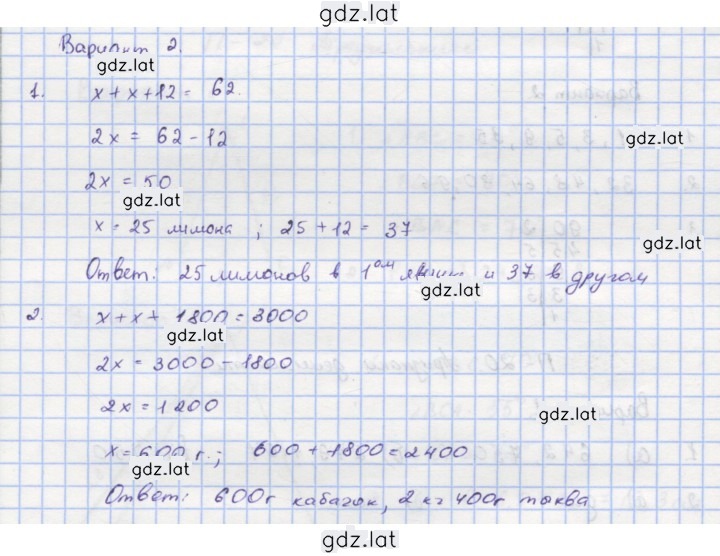 gdz.lat
Вариант 2.
gdz.lat
1. x + x + 12 = 62.
2x = 62 - 12
gdz.lat
2x = 50
gdz.lat
x = 25 лимона ; 25 + 12 = 37
gdz.lat
Ответ: 25 лимонов в 1ом и 37 в другом
gdz.lat
2. x + x + 1800 = 3000
gdz.lat
2x = 3000 - 1800
2x = 1200
gdz.lat
x = 600 г.; 600 + 1800 = 2400
gdz.lat
Ответ: 600г кабачок, 2 кг 400г тыква
gdz.lat